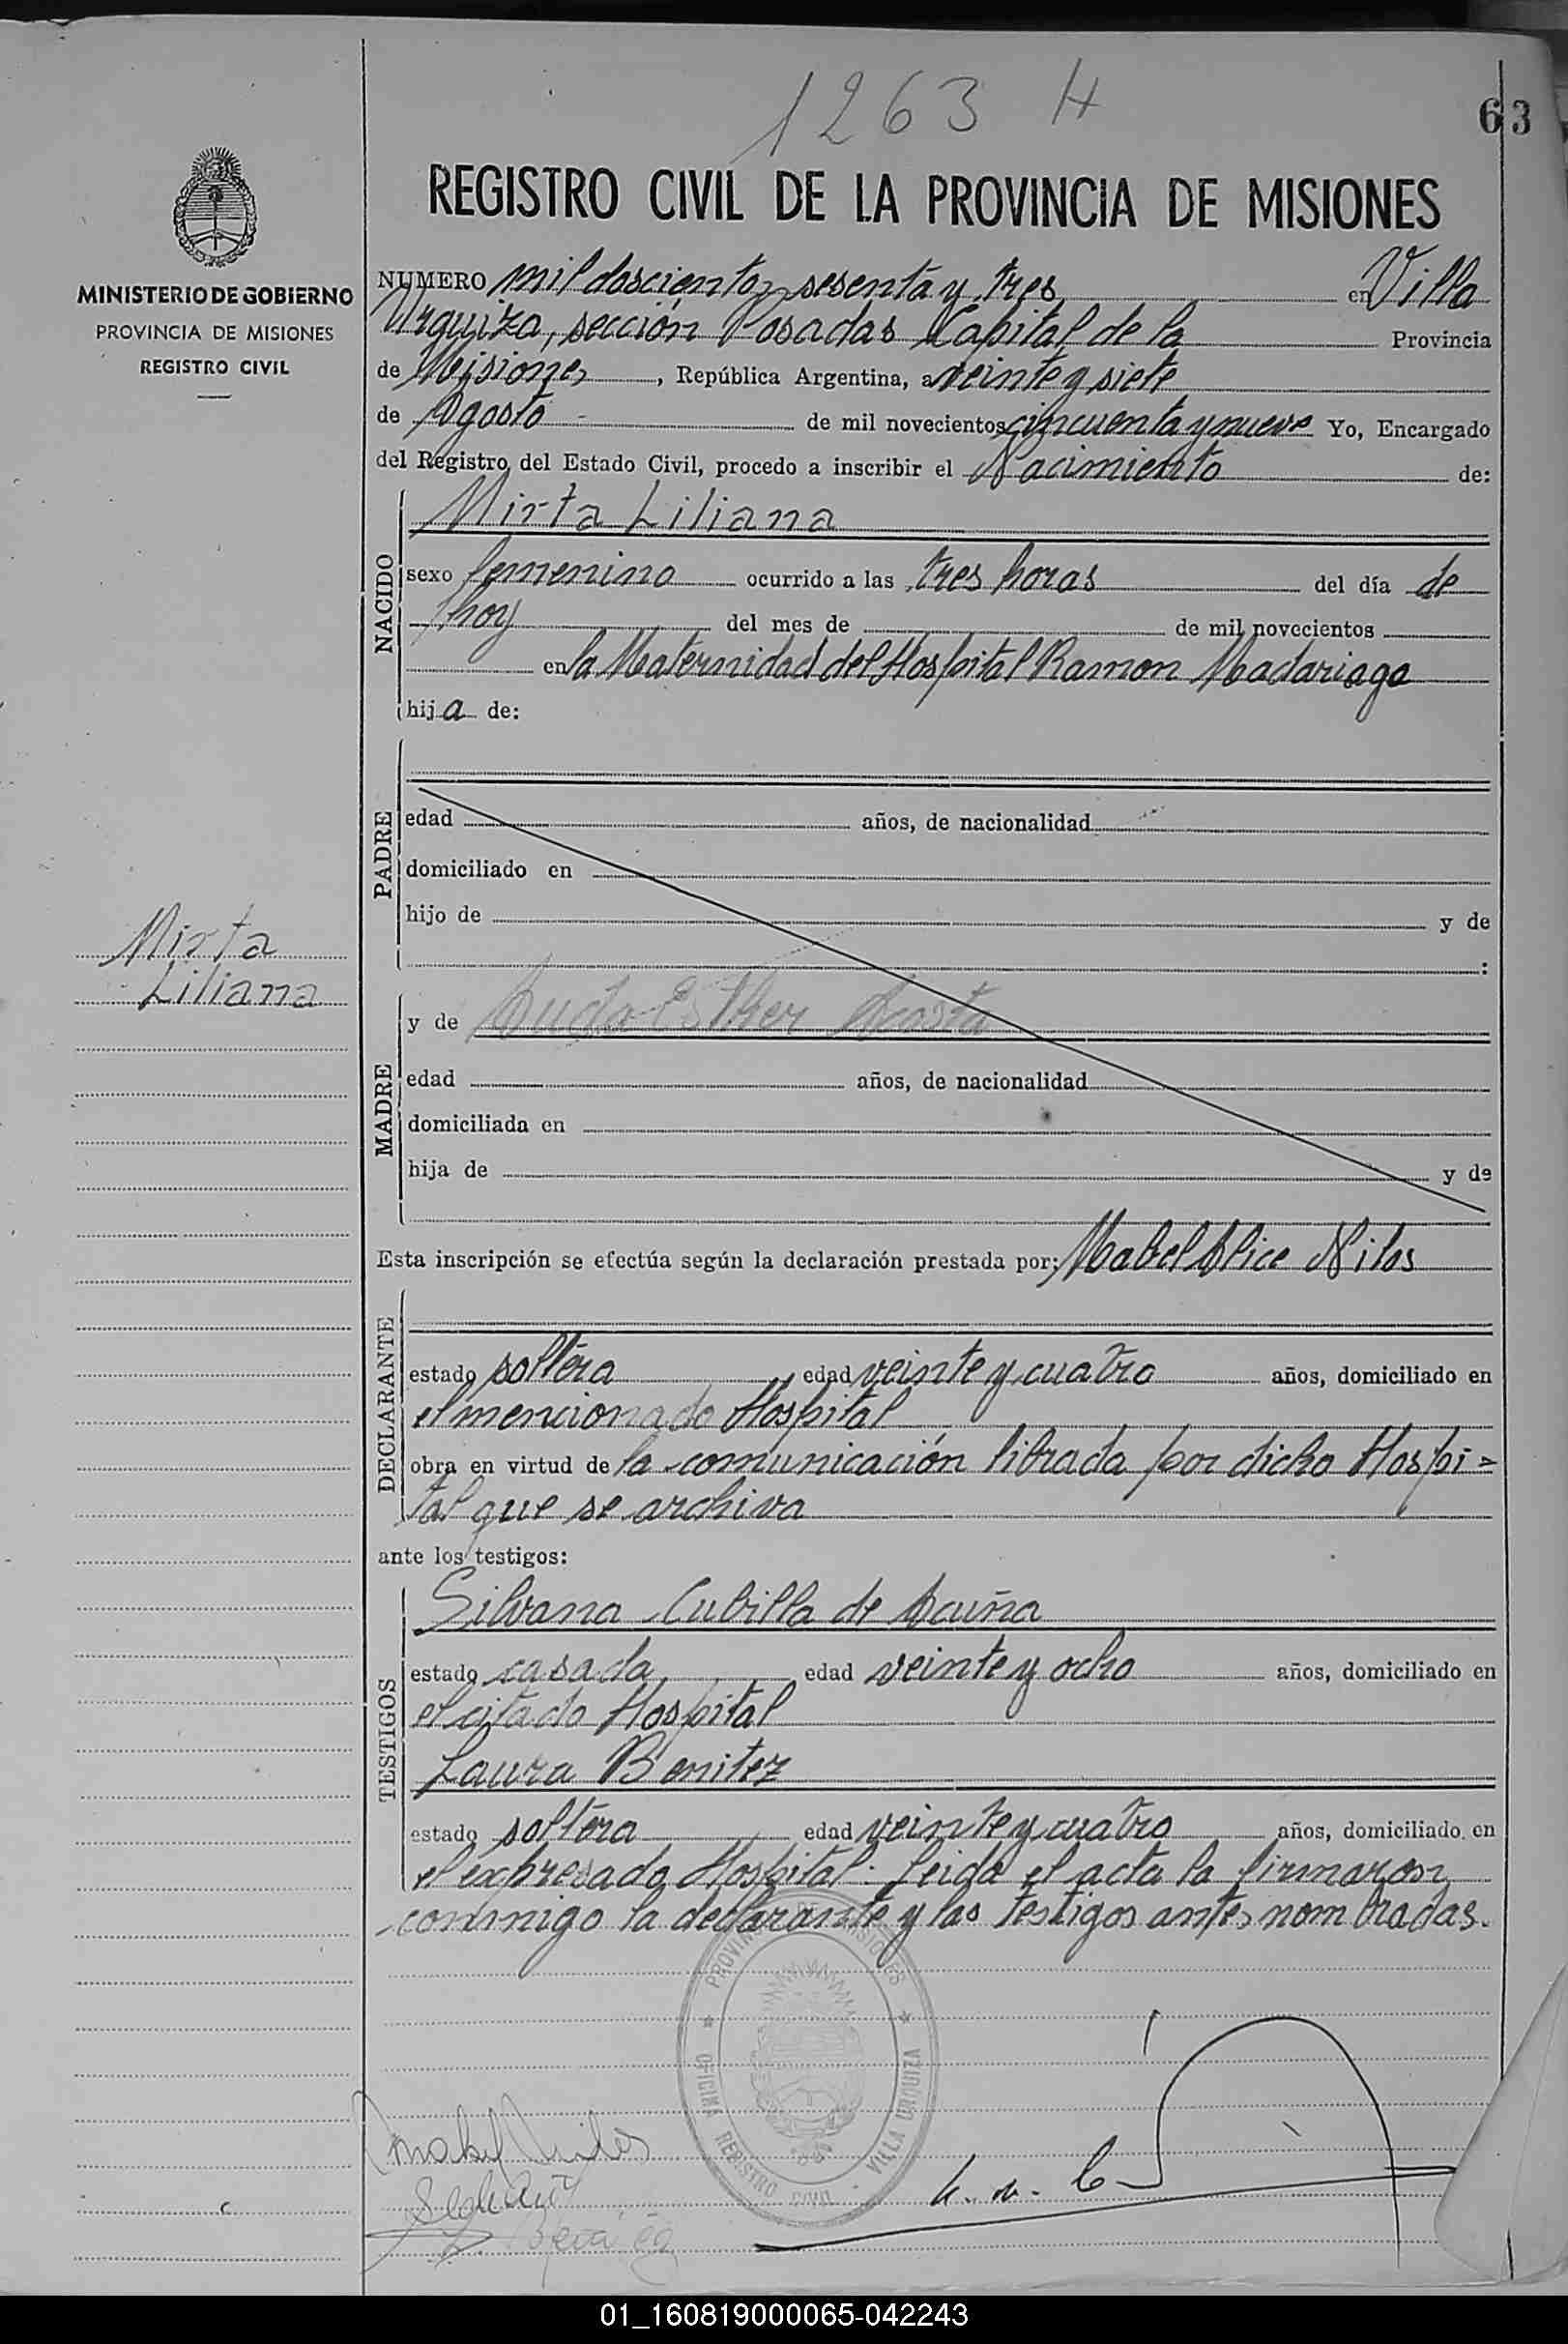 1263 H
63
MINISTERIO DE GOBIERNO
PROVINCIA DE MISIONES
REGISTRO CIVIL
REGISTRO CIVIL DE LA PROVINCIA DE MISIONES
NUMERO mil doscientos sesenta y tres en Villa
Urquiza, sección Posadas Capital de la Provincia
de Misiones, República Argentina, a veinte y siete
de Agosto de mil novecientos cincuenta y nueve Yo, Encargado
del Registro del Estado Civil, procedo a inscribir el Nacimiento de:
NACIDO
Mirta Liliana
sexo femenino ocurrido a las tres horas del día de
hoy del mes de de mil novecientos
en la Maternidad del Hospital Ramon Madariaga
hija de:
PADRE
edad años, de nacionalidad
domiciliado en
hijo de y de
:
Mirta
Liliana
MADRE
y de Esther Acosta
edad años, de nacionalidad
domiciliada en
hija de y de
Esta inscripción se efectúa según la declaración prestada por; Mabel Alice Nilos
DECLARANTE
estado soltera edad veinte y cuatro años, domiciliado en
el mencionado Hospital
obra en virtud de la comunicación librada por dicho Hospi=
tal que se archiva
ante los testigos:
TESTIGOS
Silvana Cubilla de Acuña
estado casada edad veinte y ocho años, domiciliado en
el citado Hospital
Laura Benitez
estado soltera edad veinte y cuatro años, domiciliado en
el expresado Hospital. Leida el acta la firmaron
conmigo la declarante y las testigos antes nombradas.
PROVINCIA DE MISIONES
OFICINA REGISTRO CIVIL - VILLA URQUIZA
Mabel Nilos
01_160819000065-042243